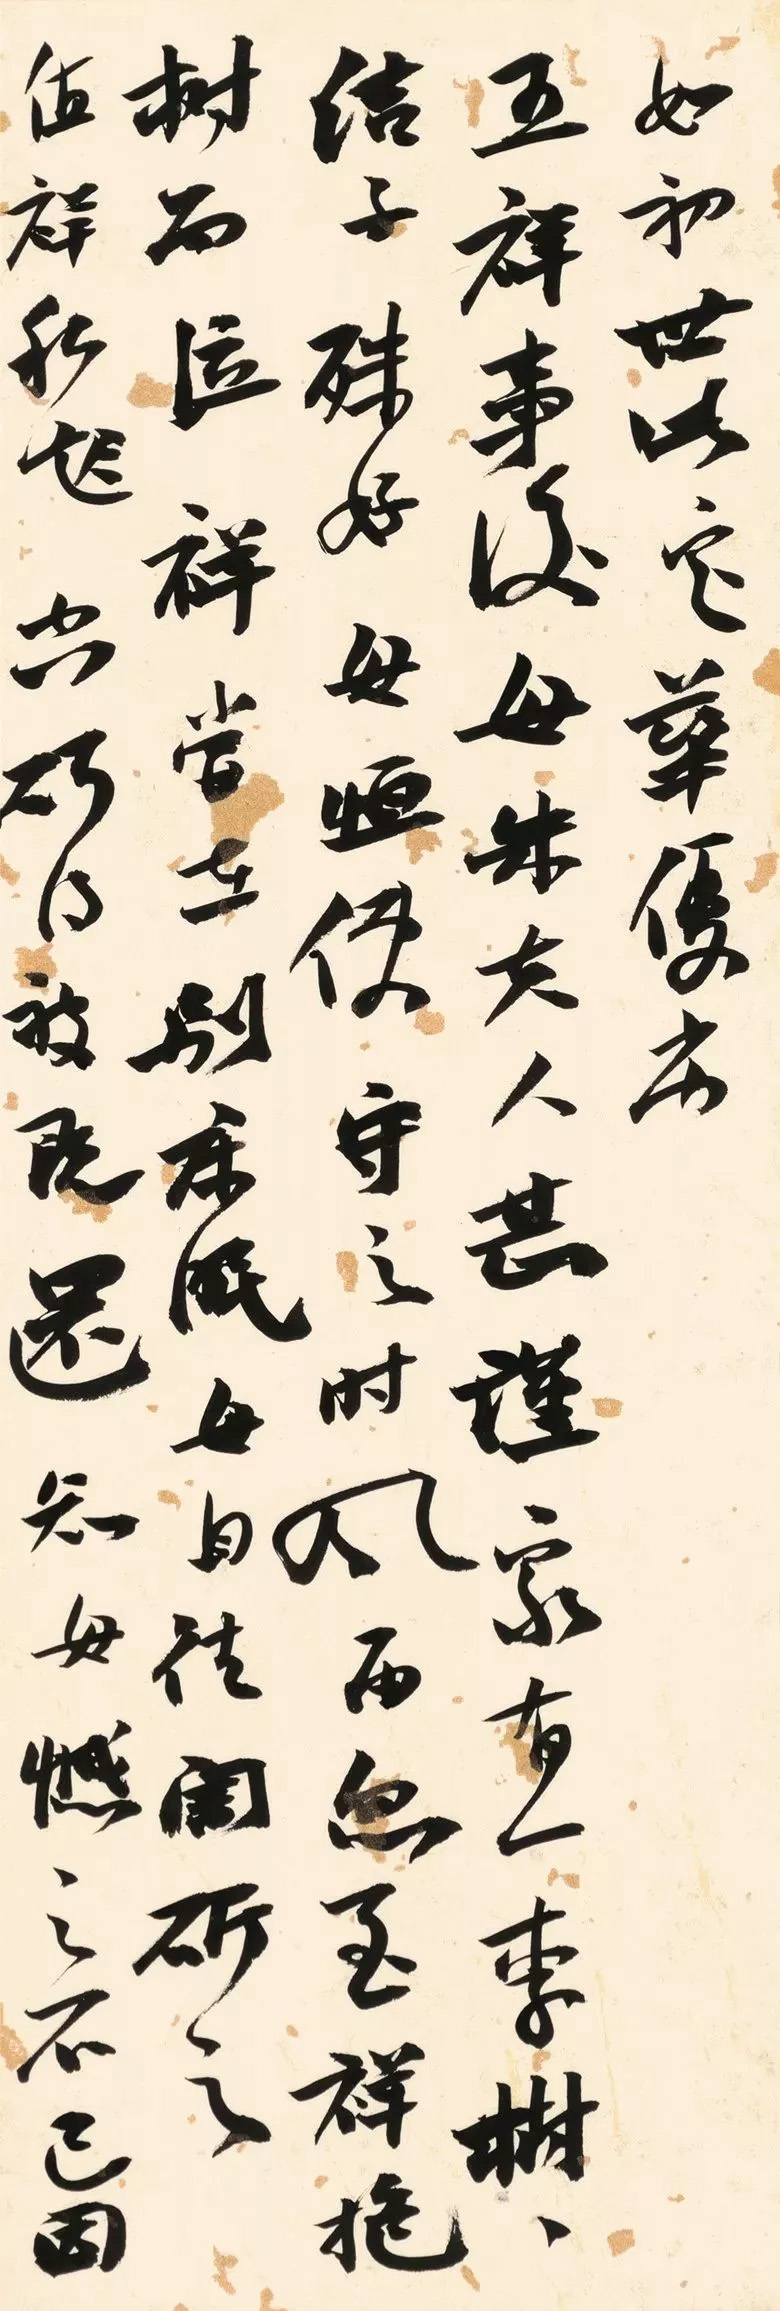 如初世以定華優劣
王祥事後母朱夫人甚謹家有一李樹、
結子殊好母恒使守之時風雨忽至祥抱
樹而泣祥嘗在別床眠母自往闇斫之
值祥私起空斫得被既還知母憾之不已因